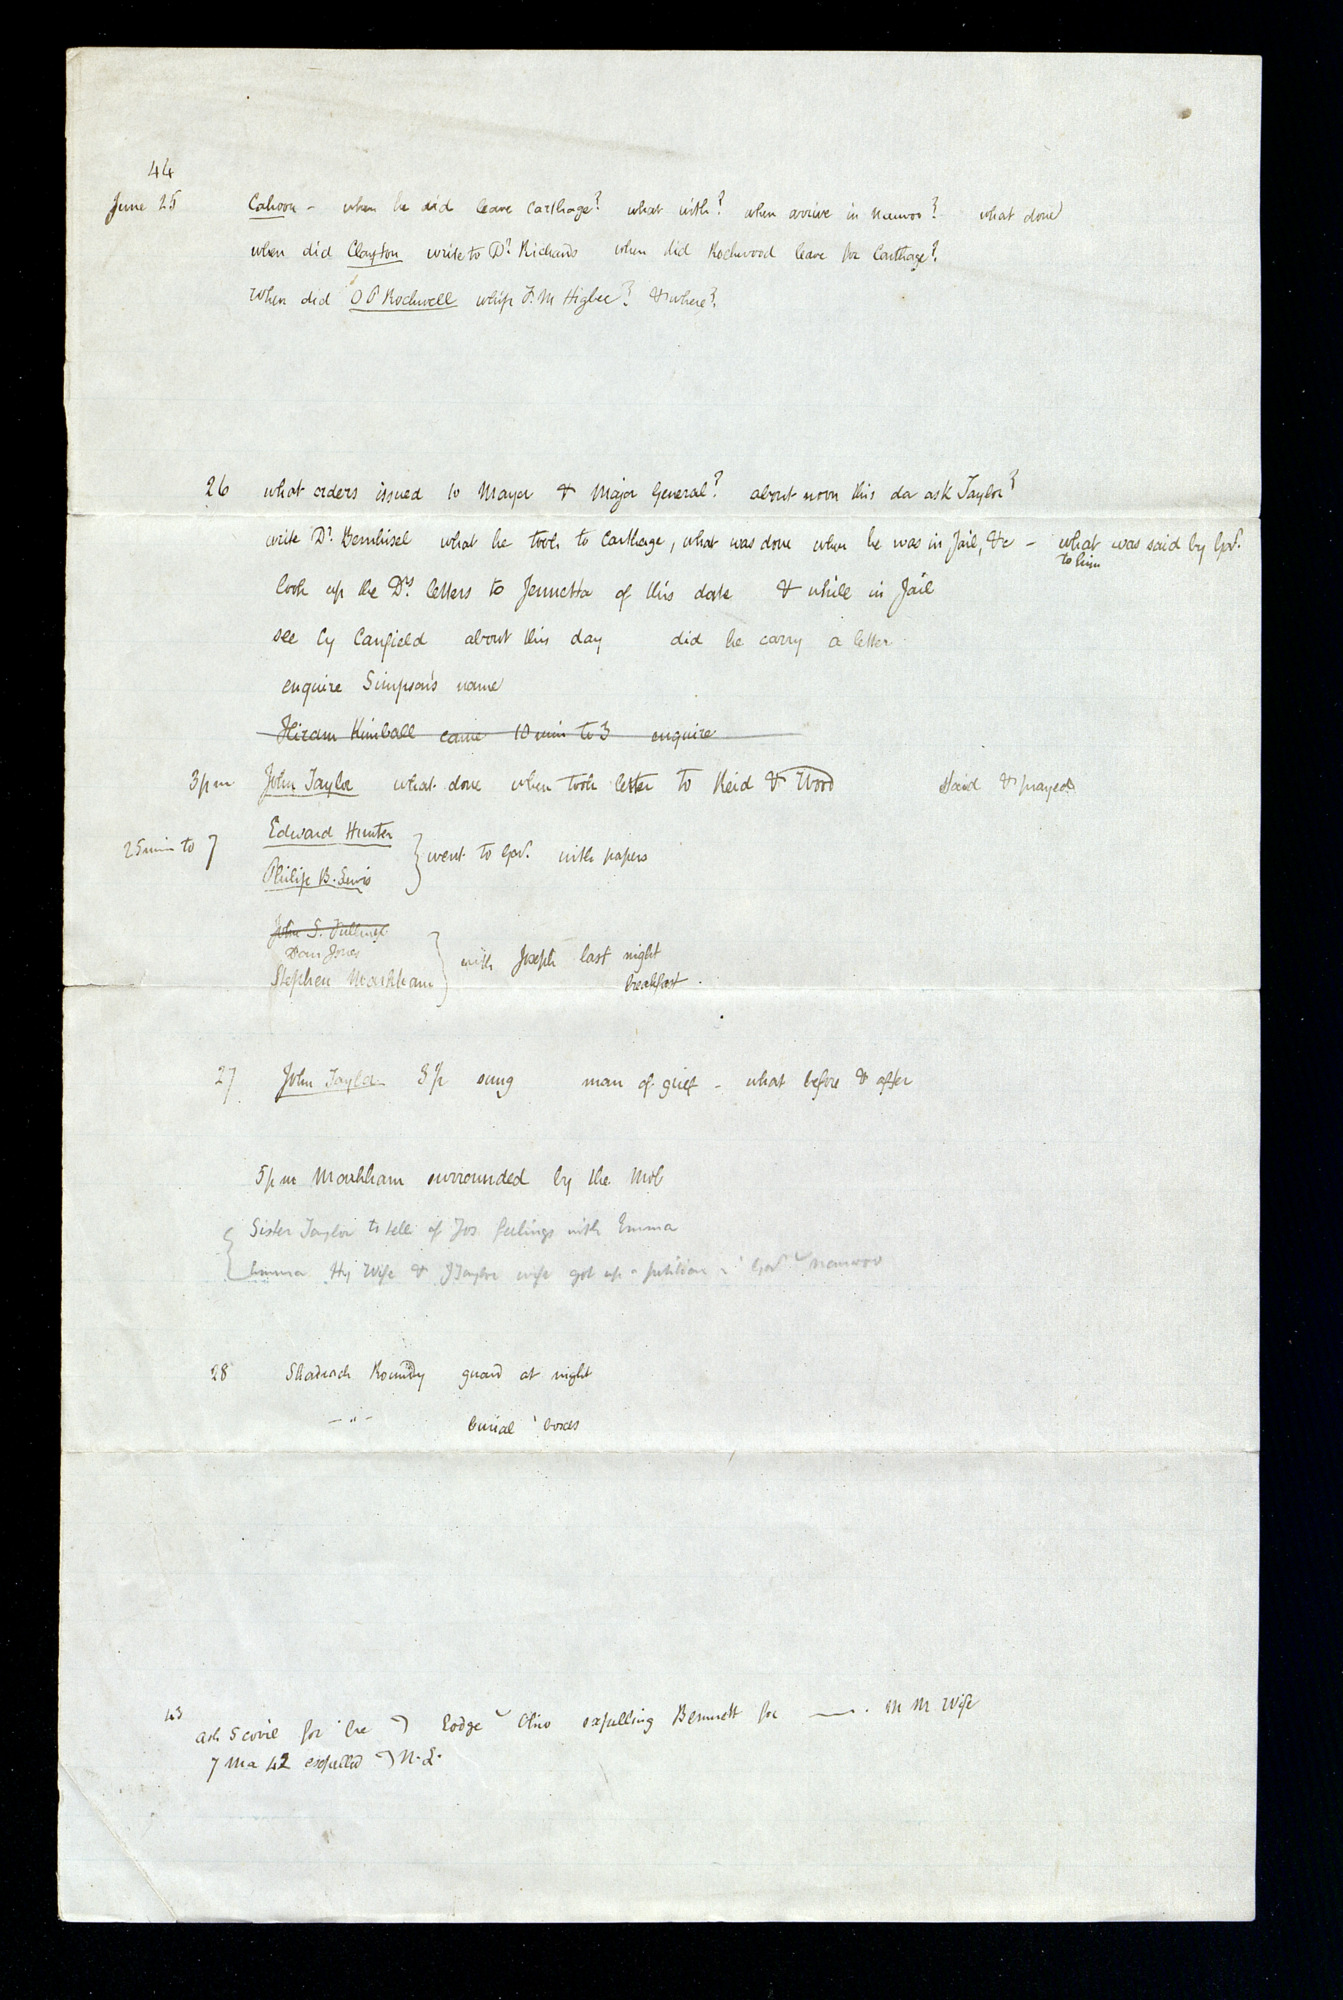 44
June 25 Cahoon - when he did leave Carthage? what with? when arrive in Nauvoo? what done
when did Clayton write to Dr Richards when did Rockwood leave for Carthage?
When did O P Rockwell whip F. M Higbee? & where?
26 what orders issued to Mayor & Major General? about noon this da ask Taylor?
write Dr. Bernhisel what he took to Carthage, what was done when he was in Jail, &c - what was said by Gov.
to him
look up the Drs letters to Jennetta of this date & while in Jail
see Cy Canfield about this day did he carry a letter
enquire Simpson's name
Hiram Kimball came 10 min to 3 enquire
3 pm John Taylor what done when took letter to Reid & Wood Said & prayed
25 min to 7 Edward Hunter
Philip B. Lewis } went to Gov. with papers
John S. Fullmer
Dan Jones
Stephen Markham } with Joseph last night
breakfast.
27 John Taylor 3 p sung man of grief - what before & after
5 pm Markham surrounded by the Mob
{ Sister Taylor to tell of Jos feelings with Emma
Emma Hy Wife & J Taylor wife got up a petition Gov Nauvoo
28 Shadrach Roundy guard at night
- " - burial boxes
43
ask Scovil for Lodge Ohio expelling Bennett for —. M M Wife
7 Ma 42 expelled N. L.